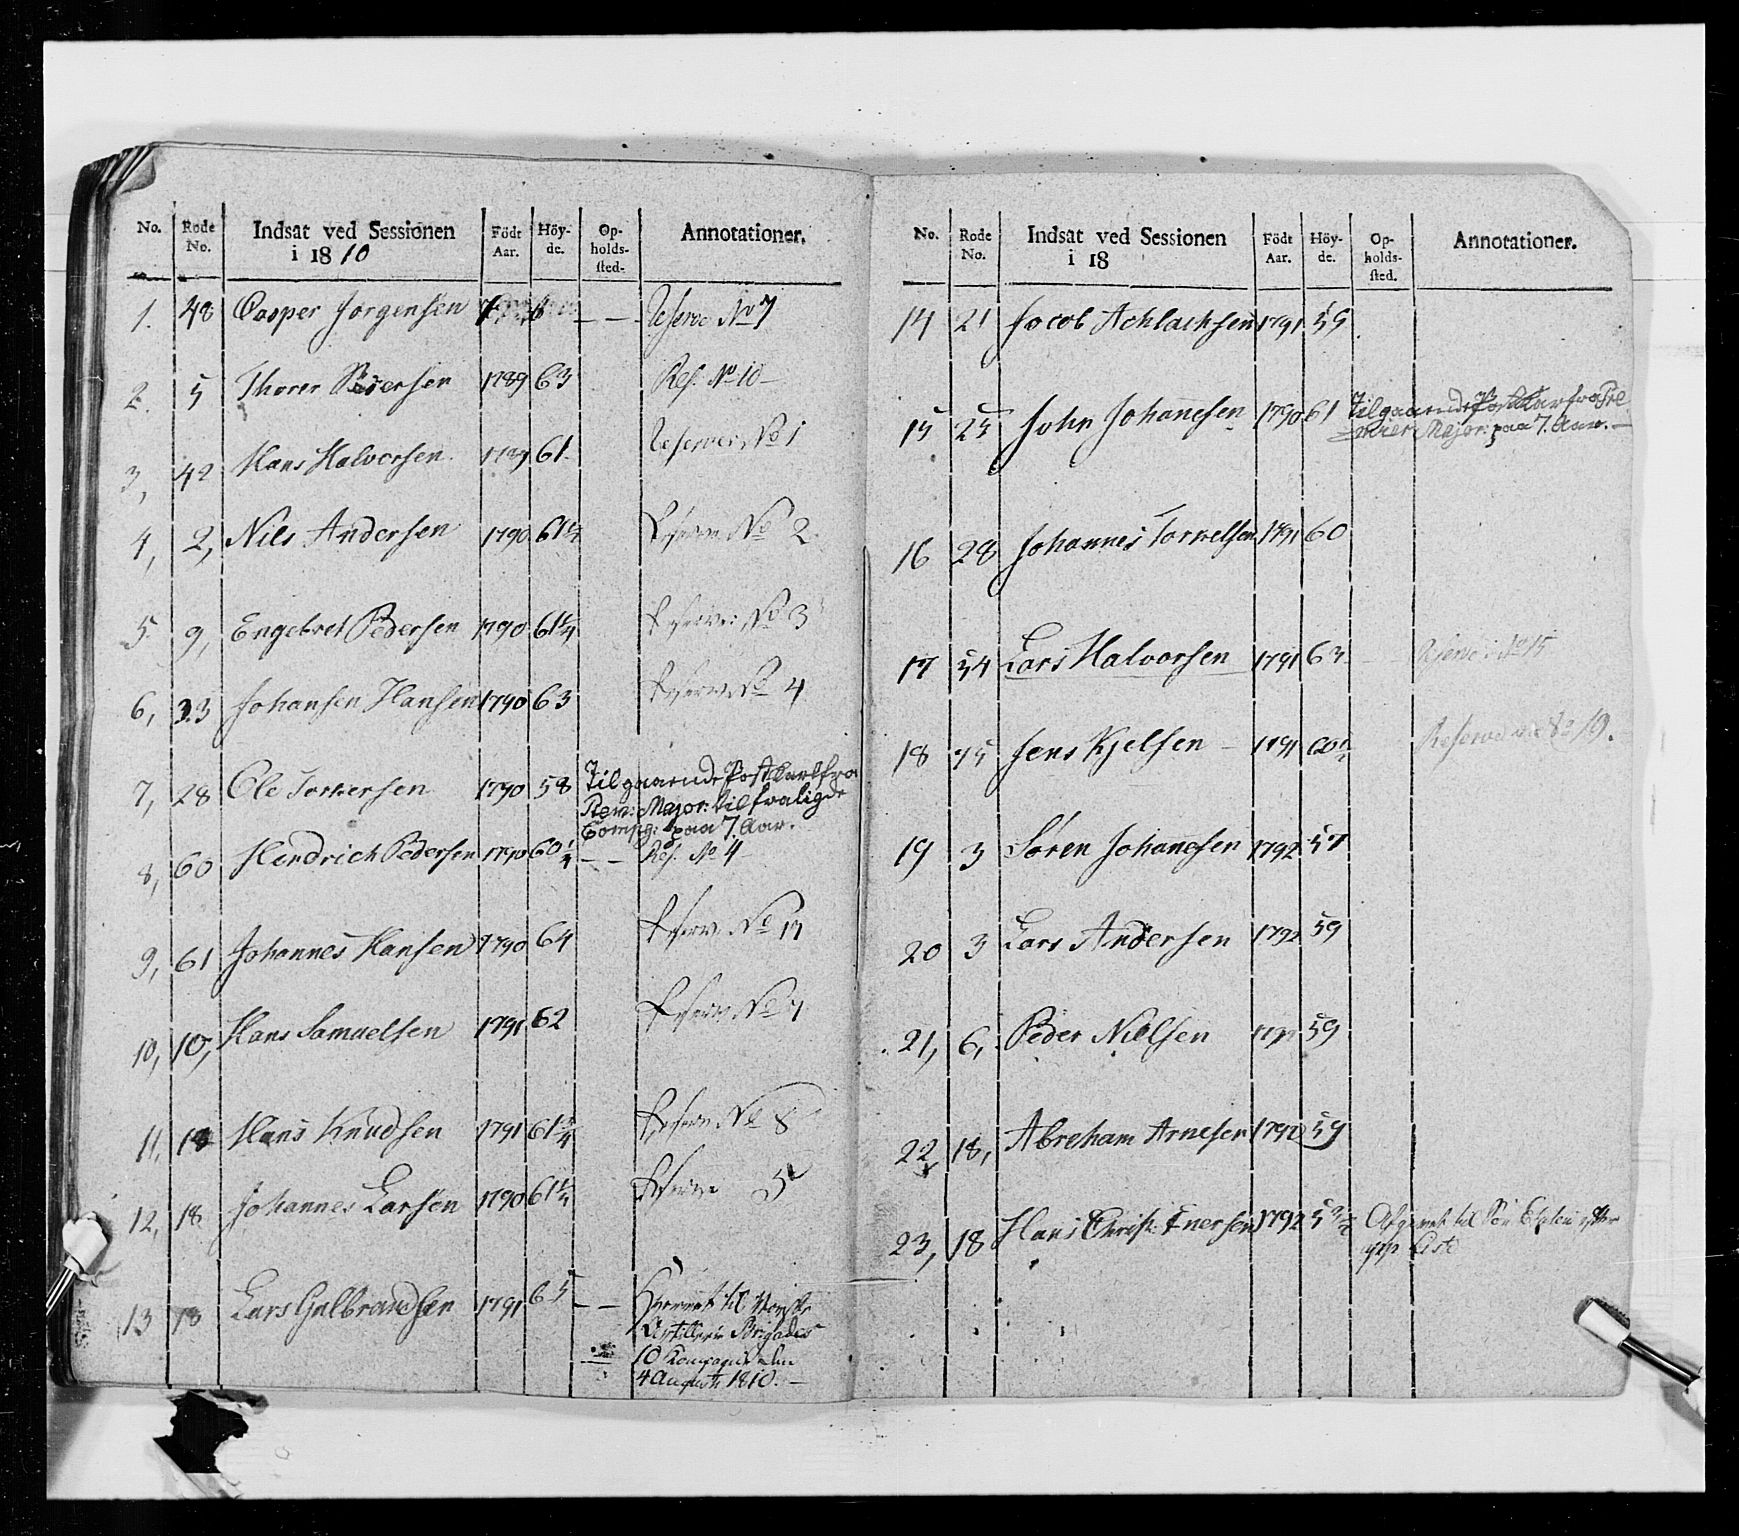 No. Rode No. Indsat ved Sessionen i 1810 Födt Aar. Höyde. Opholds-sted. Annotationer.
1. 48 Casper Jorgensen Reserve No 7
2. 5 Thorer Pedersen 1789 63 Res. No 10
3, 42 Hans Halvorsen 1789 61 Reserve No 1
4, 2, Nils Andersen 1790 61 1/4 Reserve No 2
5 9, Engebret Pedersen 1790 61 1/4 Reserve No 3
6, 33 Johansen Hansen 1790 63 Reserve No 4
7, 28 Ole Torkersen 1790 58 Tilgaaende Postkarl fra
Rev: Major: til fraligde
Compg: paa 7. Aar.
8, 60 Hendrich Pedersen 1790 60 1/4 — — Res. No 4
9, 61 Johannes Hansen 1790 64 Reserv No
10, 10, Hans Samuelsen 1791 62 Reserv No 7
11, 18 Hans Knudsen 1791 61 3/4 Reserve No 8
12, 18 Johannes Larsen 1790 61 1/4 Reserve 5
13 18 Lars Gulbrandsen 1791 65 — — til Norske
Artillerie Brigades
10 Kompagnie den
4 August 1810. —
No. Rode No. Indsat ved Sessionen i 18 Födt Aar. Höyde. Opholds-sted. Annotationer.
14 21 Jocob Achlachsen 1791 59
15 25 John Johannesen 1790 61 Tilgaaende Postkarl fra
Major: paa 7. Aar. —
16 28 Johannes Torvelsen 1791 60
17 54 Lars Halvorsen 1791 63 Reserve No 15
18 45 Jens Kjelsen — 1791 60 1/2 Reserve No 19.
19 3 Sören Johannesen 1792 57
20 3 Lars Andersen 1792 59
21, 6, Peder Nielsen 59
22, 18, Abreham Arnesen 1792 59
23, 18 Hans Christ: Enersen 1792 til
Liste